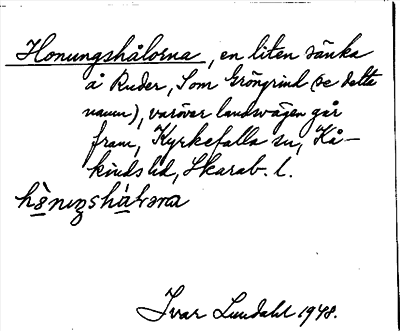 Honungshålorna, en liten sänka
å Ruder, Som Gröngrind (se detta
namn), varöver landsvägen går
fram, Kyrkefalla sn, Kå-
kinds hd, Skarab. l.
Ivar Lundahl 1948.